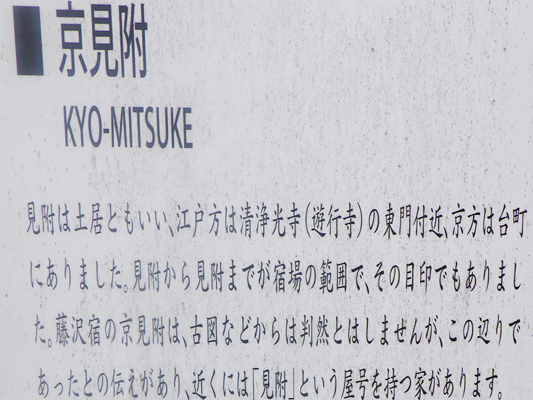 ■ 京見附
KYO-MITSUKE
見附は土居ともいい、江戸方は清浄光寺（遊行寺）の東門付近、京方は台町
にありました。見附から見附までが宿場の範囲で、その目印でもありまし
た。藤沢宿の京見附は、古図などからは判然とはしませんが、この辺りで
あったとの伝えがあり、近くには「見附」という屋号を持つ家があります。